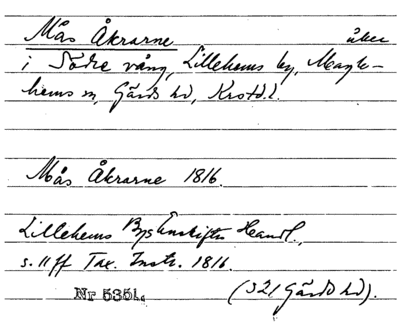 Mås Åkrarne åker
i Södre vång, Lillehems by, Magle-
hems sn, Gärds hd, Krstd. l.
Mås Åkrarne 1816.
Lillehems Bys Enskiftes Handl.,
s. 11 ff Tax. Instr. 1816.
Nr 5351. (321 Gärds hd).